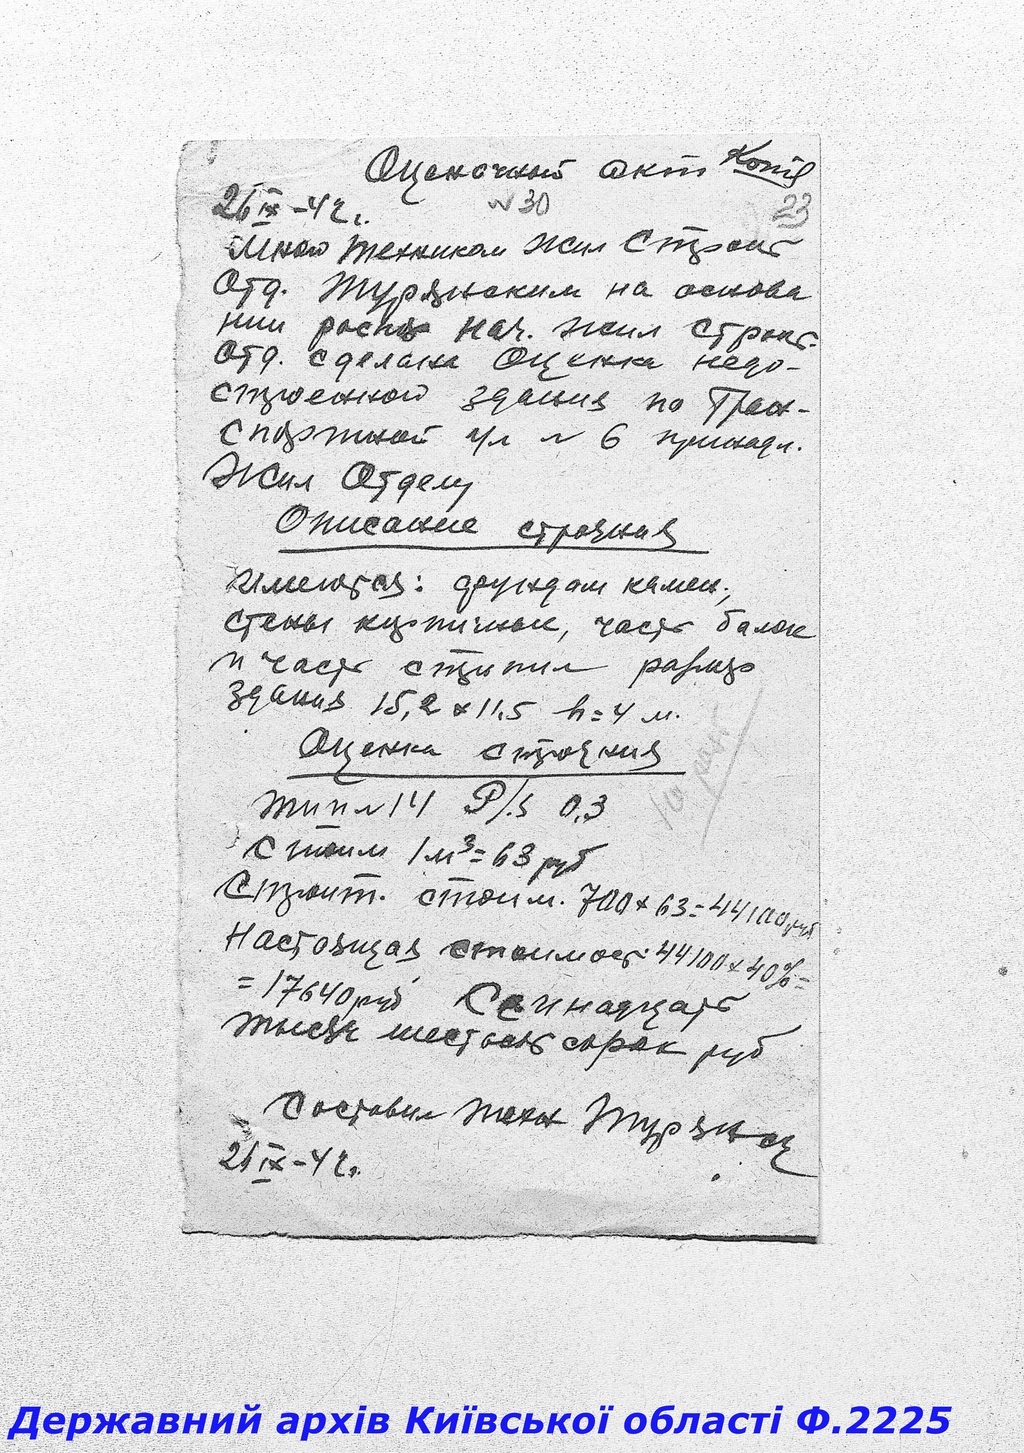 Оценочный акт Копия
26 IX-42г. № 30 23
Мною техником Жил Строит
Отд. Турянским на основа
нии распор Нач. Жил Строит.
Отд. сделана Оценка недо-
строенной здания по Тран-
спортной ул № 6 принадл.
Жил Отделу
Описание строения
Имеются: фундам камен.,
стены кирпичные, часть балок
и часть стропил размер
здания 15,2 x 11,5 h=4 м.
Оценка строения
Тип № 14 0,3
Стоим 1 м³ = 63 руб
Строит. стоим. 700 x 63 = 44100 руб
Настоящая стоимость 44100 x 40% =
= 17640 руб Семнадцать
тысяч шестьсот сорок руб
Составил техн
26 IX-42г.
Державний архів Київської області Ф.2225